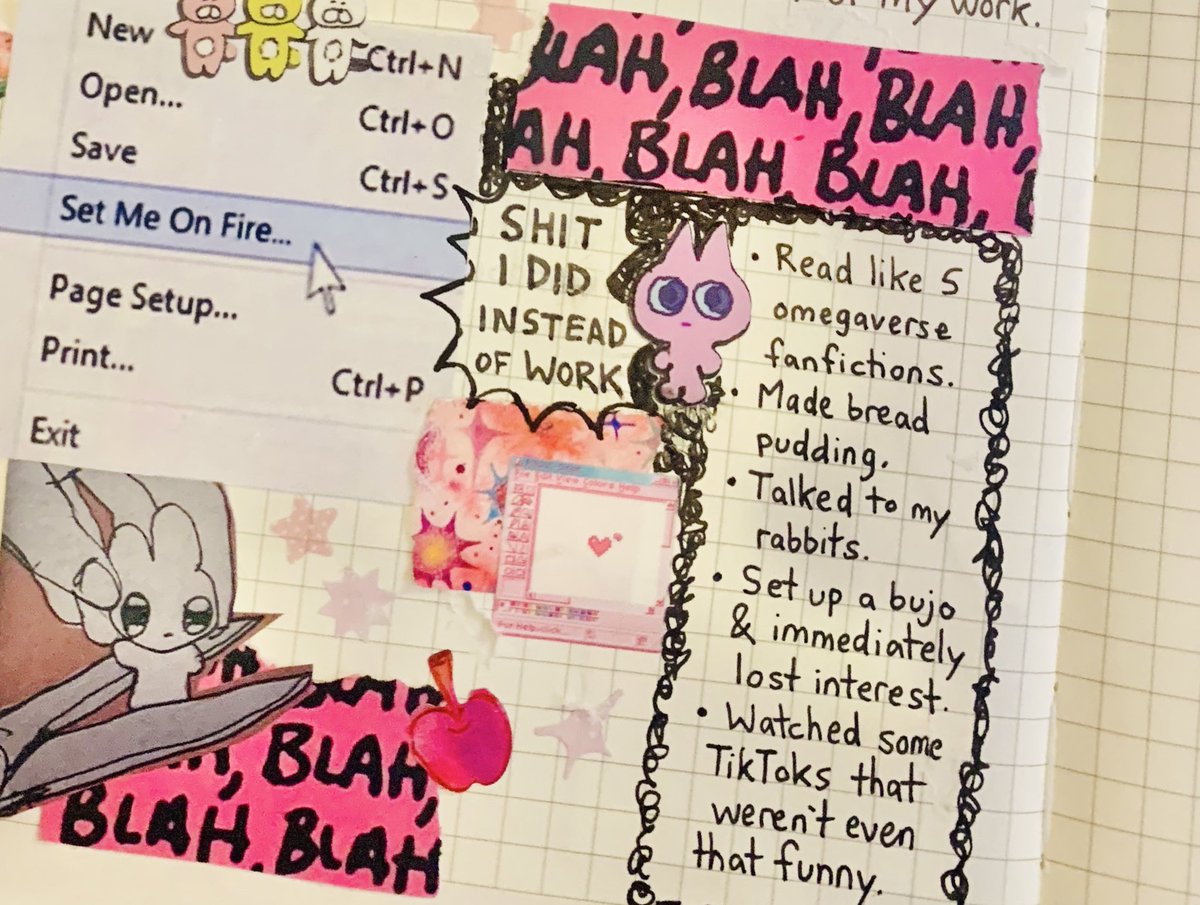 my work.
New Ctrl+N
Open... Ctrl+O
Save Ctrl+S
Set Me On Fire...
Page Setup...
Print... Ctrl+P
Exit
BLAH, BLAH, BLAH,
BLAH, BLAH,
SHIT
I DID
INSTEAD
OF WORK
• Read like 5
omegaverse
fanfictions.
• Made bread
pudding.
• Talked to my
rabbits.
• Set up a bujo
& immediately
lost interest.
• Watched some
TikToks that
weren't even
that funny.
View Colors Help
BLAH,
BLAH, BLAH